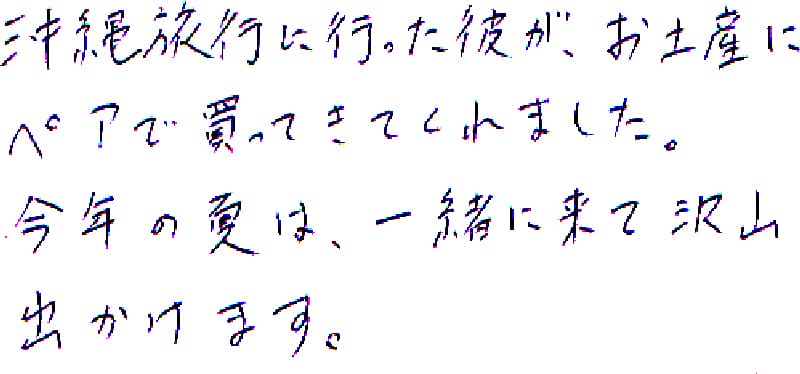 沖縄旅行に行った彼が、お土産に
ペアで買ってきてくれました。
今年の夏は、一緒に来て沢山
出かけます。